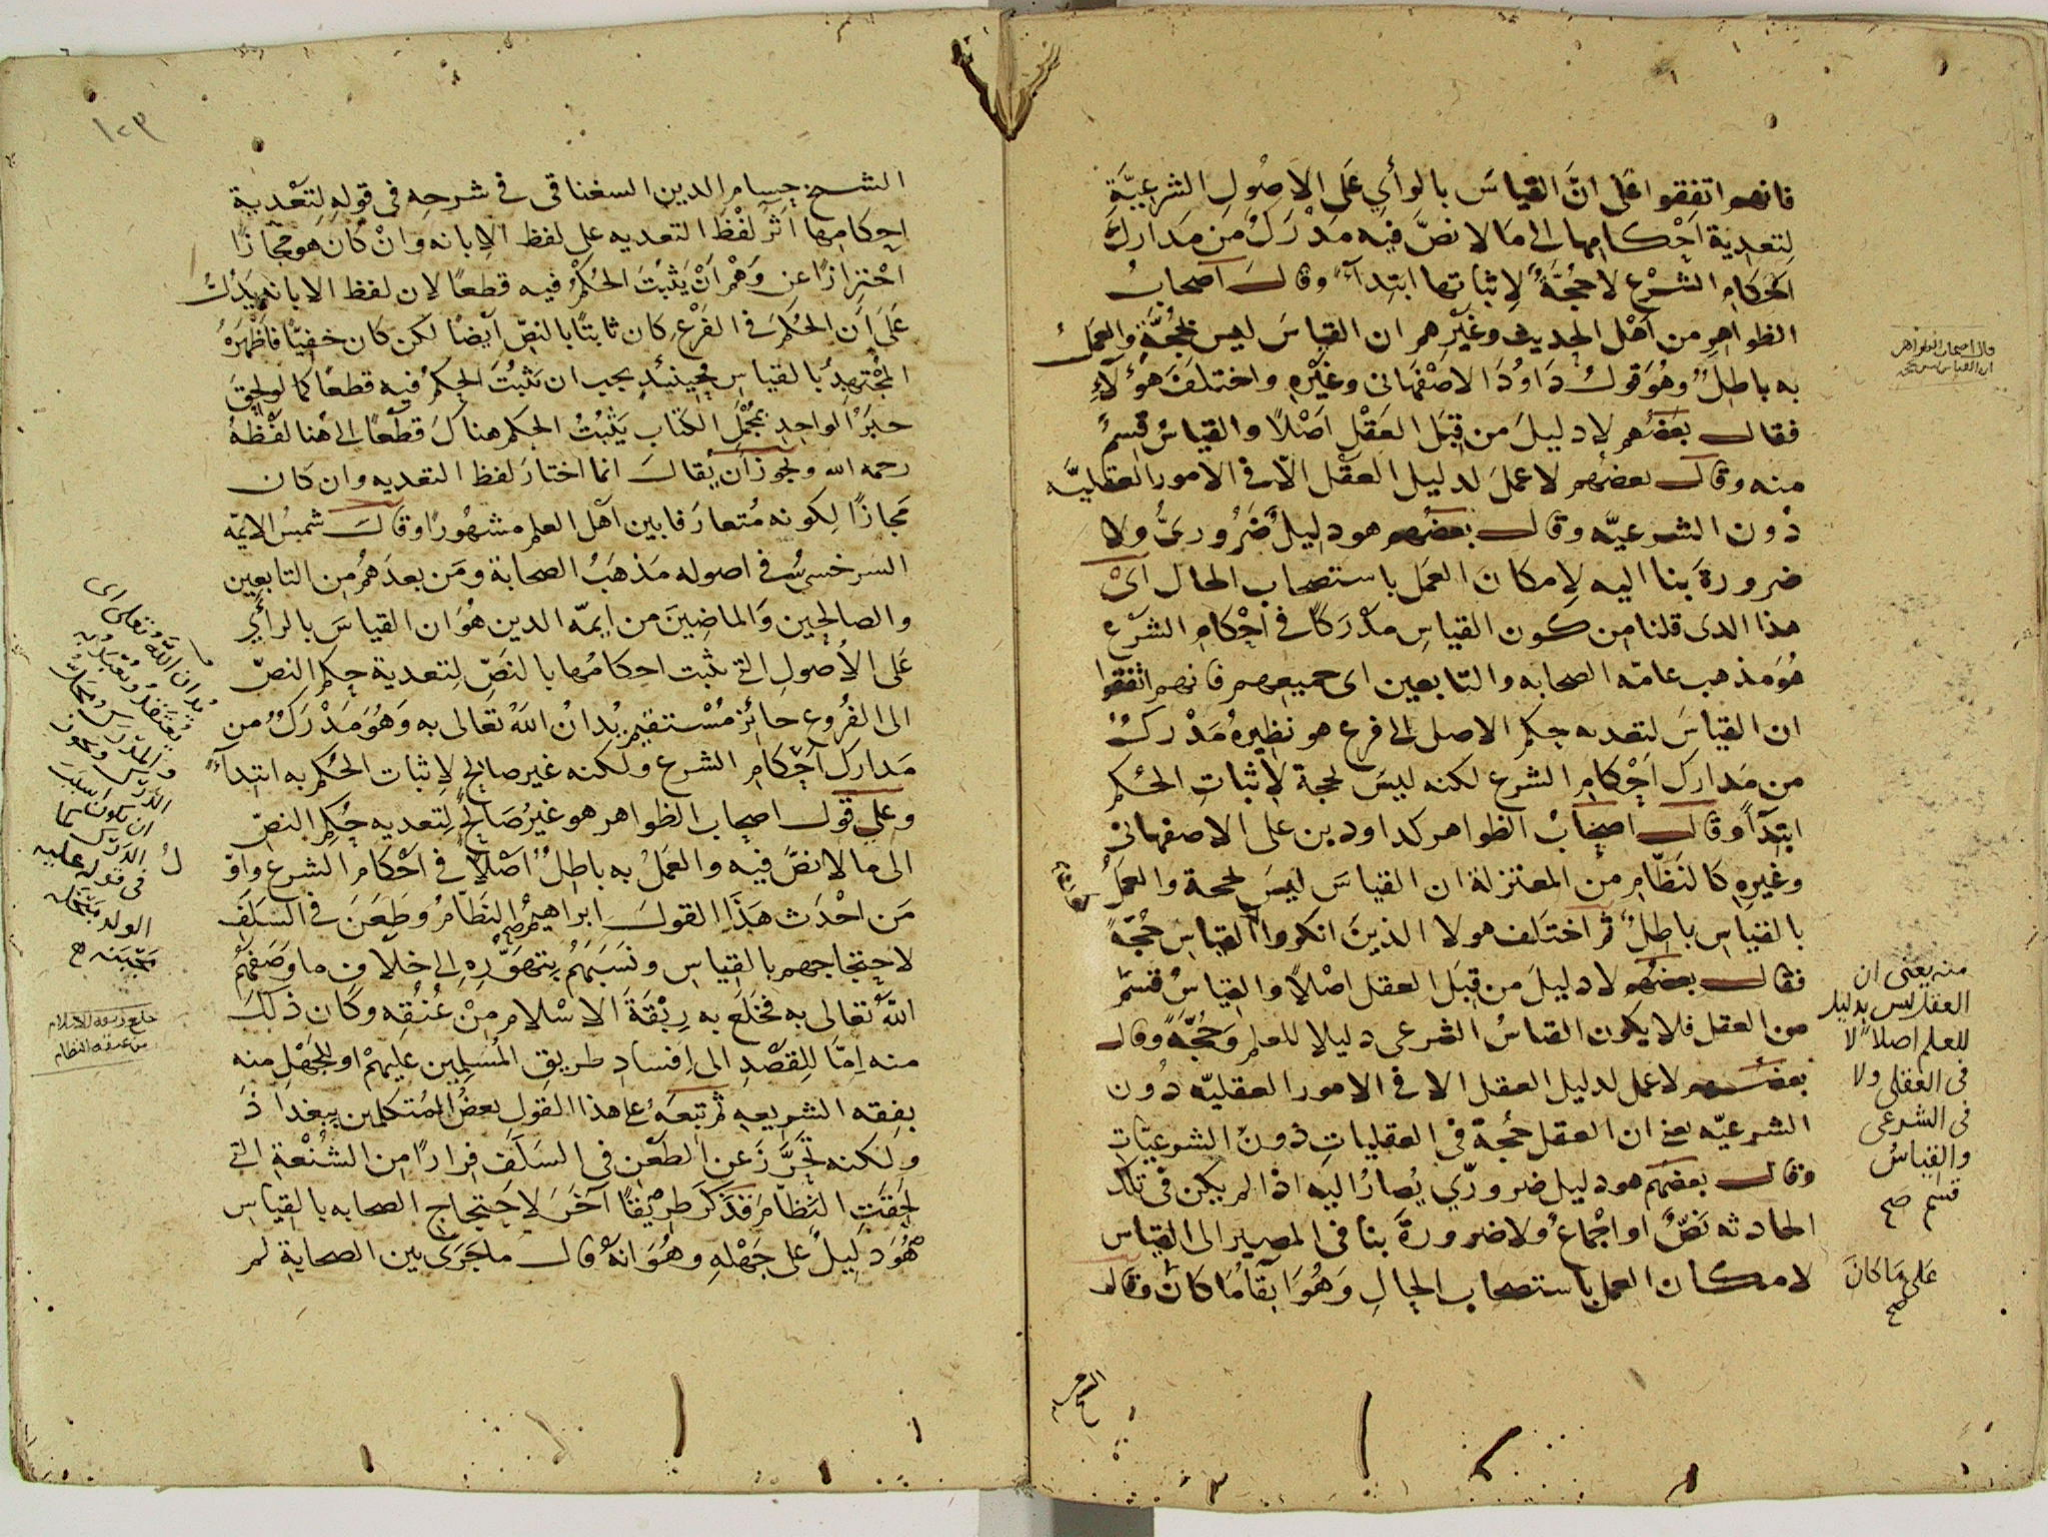 فانهم اتفقوا على انَّ القياسَ بالرأي عَلى الاصُولِ الشرعيَّة
لِتعدِية اَحْكامِها الى مَا لا نصَّ فيه مَدْرَكٌ من مَدَارِك
اَحكامِ الشرْع لا حُجَّةٌ لاِثباتها ابتِدآءً وقالَ اصحابُ
الظواهِر من اَهْل الحديث وغيْرِهم ان القياسَ ليس بحُجَّةٍ والعَملُ
به باطِلٌ وهُوَ قولُ دَاوُدَ الاصْفهانى وغيْرِه واختلفَ هؤلآءِ
فقال بعضُهم لا دليلَ من قِبَل العَقْلِ اَصْلاً والقياسُ قِسمٌ
منه وقال بعضهم لا عملَ لدليل العقْل الّا فى الامور العقليَّه
دُون الشرعيَّه وقال بعضهم هو دليلٌ ضَرُورىٌّ ولا
ضرورةَ بنا اليه لِامكانَ العَمَل باستصحاب الحال اَىْ
هذا الذى قلنا مِن كون القياسِ مدْرَكًا فى احْكامِ الشرْع
هُوَ مذهب عامّه الصحابه والتابعين اى جميعهم فانهم اتفقوا
ان القياسَ لتعديه حكم الاصل الى فرع هو نظيرهُ مَدْركٌ
من مَدارك اَحْكام الشرع لكنه ليسَ بحجة لاِثباتِ الحُكم
ابتدآءً وقال اصحابُ الظواهر كداود بن على الاصفهانى
وغيره كالنَظّامِ من المعتزلة ان القياسَ ليسَ بحجة والعَملُ
بالقياسِ باطِلٌ ثم اختلف هولا الذينَ انكروا القياسِ حُجّةً
فقال بعضُهم لا دليلَ من قِبَل العقل اصْلاً والقياسُ قسمٌ
من العقل فلا يكون القياسُ الشرعى دليلا للعلم وَحُجَّةً وقال
بعضهم لا عمل لدليل العقل الا فى الامور العقليّه دُون
الشرعيّه يعنى ان العقل حُجة فى العقلياتِ دونَ الشرعيّاتِ
وقال بعضهم هو دليل ضرورىّ يُصارُ اليه اذا لم يكن فى تلك
الحادثه نَصٌّ او اجْماعٌ ولا ضرورةَ بنا فى المصير الى القياس
لامكان العمل باستصحاب الحالِ وَهُوَ ابقآءُ مَا كانَ وقال
قال اصحاب الظواهر
ان القياس ليس بحجه
منه يعنى ان
العقل ليس بدليل
للعلم اصلاً لا
فى العقلى ولا
فى الشرعى
والقياسُ
قسم صح
عَلى مَا كانَ
صح
الشيخ
١٢٣
الشيخ حسام الدين السغناقى فى شرحِه فى قوله لِتعْدية
احكامِها اثرَ لفْظَ التعديه على لفظ الاِبانه وانْ كان هو مَجازًا
احْترازًا عن وَهْمِ اَنْ يَثبُتَ الحُكمُ فيه قطعًا لان لفظ الابانه يَدُلُّ
عَلى اَن الحُكمَ فى الفرْع كان ثابتًا بالنصّ اَيضًا لكن كان خفِيًّا فاَظْهَرَهُ
المُجْتهِدُ بالقياسِ فحِينئذٍ يجب ان يَثبُتَ الحكمُ فيه قطعًا كما لو لحِقَ
خبَرُ الواحِدِ بمُجْمَل الكتابِ يَثبُتُ الحكم هناكَ قطعًا الى هُنا لفْظهُ
رحمه الله ويجوز اَن يُقال انما اختارَ لفظ التعديه وان كان
مَجازًا لِكونه مُتعارَفا بين اَهْل العلم مشهُورًا وقال شمسُ الايمّه
السرخسىُّ فى اصوله مَذهَبُ الصحابة ومَن بعدَهُم من التابعين
والصالحين وَالماضِينَ من ايمّه الدين هُوَ ان القياسَ بالرأي
عَلى الاُصولِ التى يثبت احكامُها بالنصِّ لِتعدية حكم النصّ
الى الفُروع جائز مُسْتقيم يُدانُ اللهُ تعَالى به وَهُوَ مَدْرَكٌ من
مَدارك اَحْكامِ الشرع ولكنه غير صالحٍ لاِثبات الحُكم به ابتدآءً
وعلى قول اصحاب الظواهر هو غيرُ صَالحٍ لِتعديه حُكم النصّ
الى ما لا نصَّ فيه والعَمَلُ به باطِلٌ اَصْلاً فى اَحْكام الشرع واوّل
مَن احْدَث هَذا القولَ ابراهيمُ النَظّامُ وطَعَنَ فى السَلَف
لاحتجاجهم بالقياسِ ونسَبَهُم بِتهوُّرِهِ الى خلاف ما وصَفهُم
اللهُ تعالى به فخلَعَ به رِبْقَةَ الاسْلامِ مِنْ عُنُقِه وكان ذلكَ
منه اِمّا للِقصْدِ الى اِفسادِ طريقِ المُسلمين عليهمْ او للجَهْلِ منه
بفِقه الشريعه ثم تبِعَهُ على هذا القولِ بعضُ المُتكلمين ببغداذ
ولكنه تحَرَّزَ عن الطَعْن فى السَلَف فِرارًا من الشُنْعةِ التى
لحِقتِ النَظّامَ فذكَرَ طرِيقًا آخَرَ لاحتجاج الصحابه بالقياسِ
هُوَ دَلِيلٌ على جَهْلهِ وهُوَ انهُ قال ما جَرَى بين الصحابةِ لم
يُدان اللهُ تعَالى اى
يُعتقدُ ويُتعبَّدُ به
والمدْرَس محَلُّ
الدَرْس ويجوز
ان يكون اسبَبَ
الدَرَك كما
فى قوله عليه
الولد مَبْخَلَة
مَجْبَنة صح
خلع ربقة الاسلام
من عنقه النظام